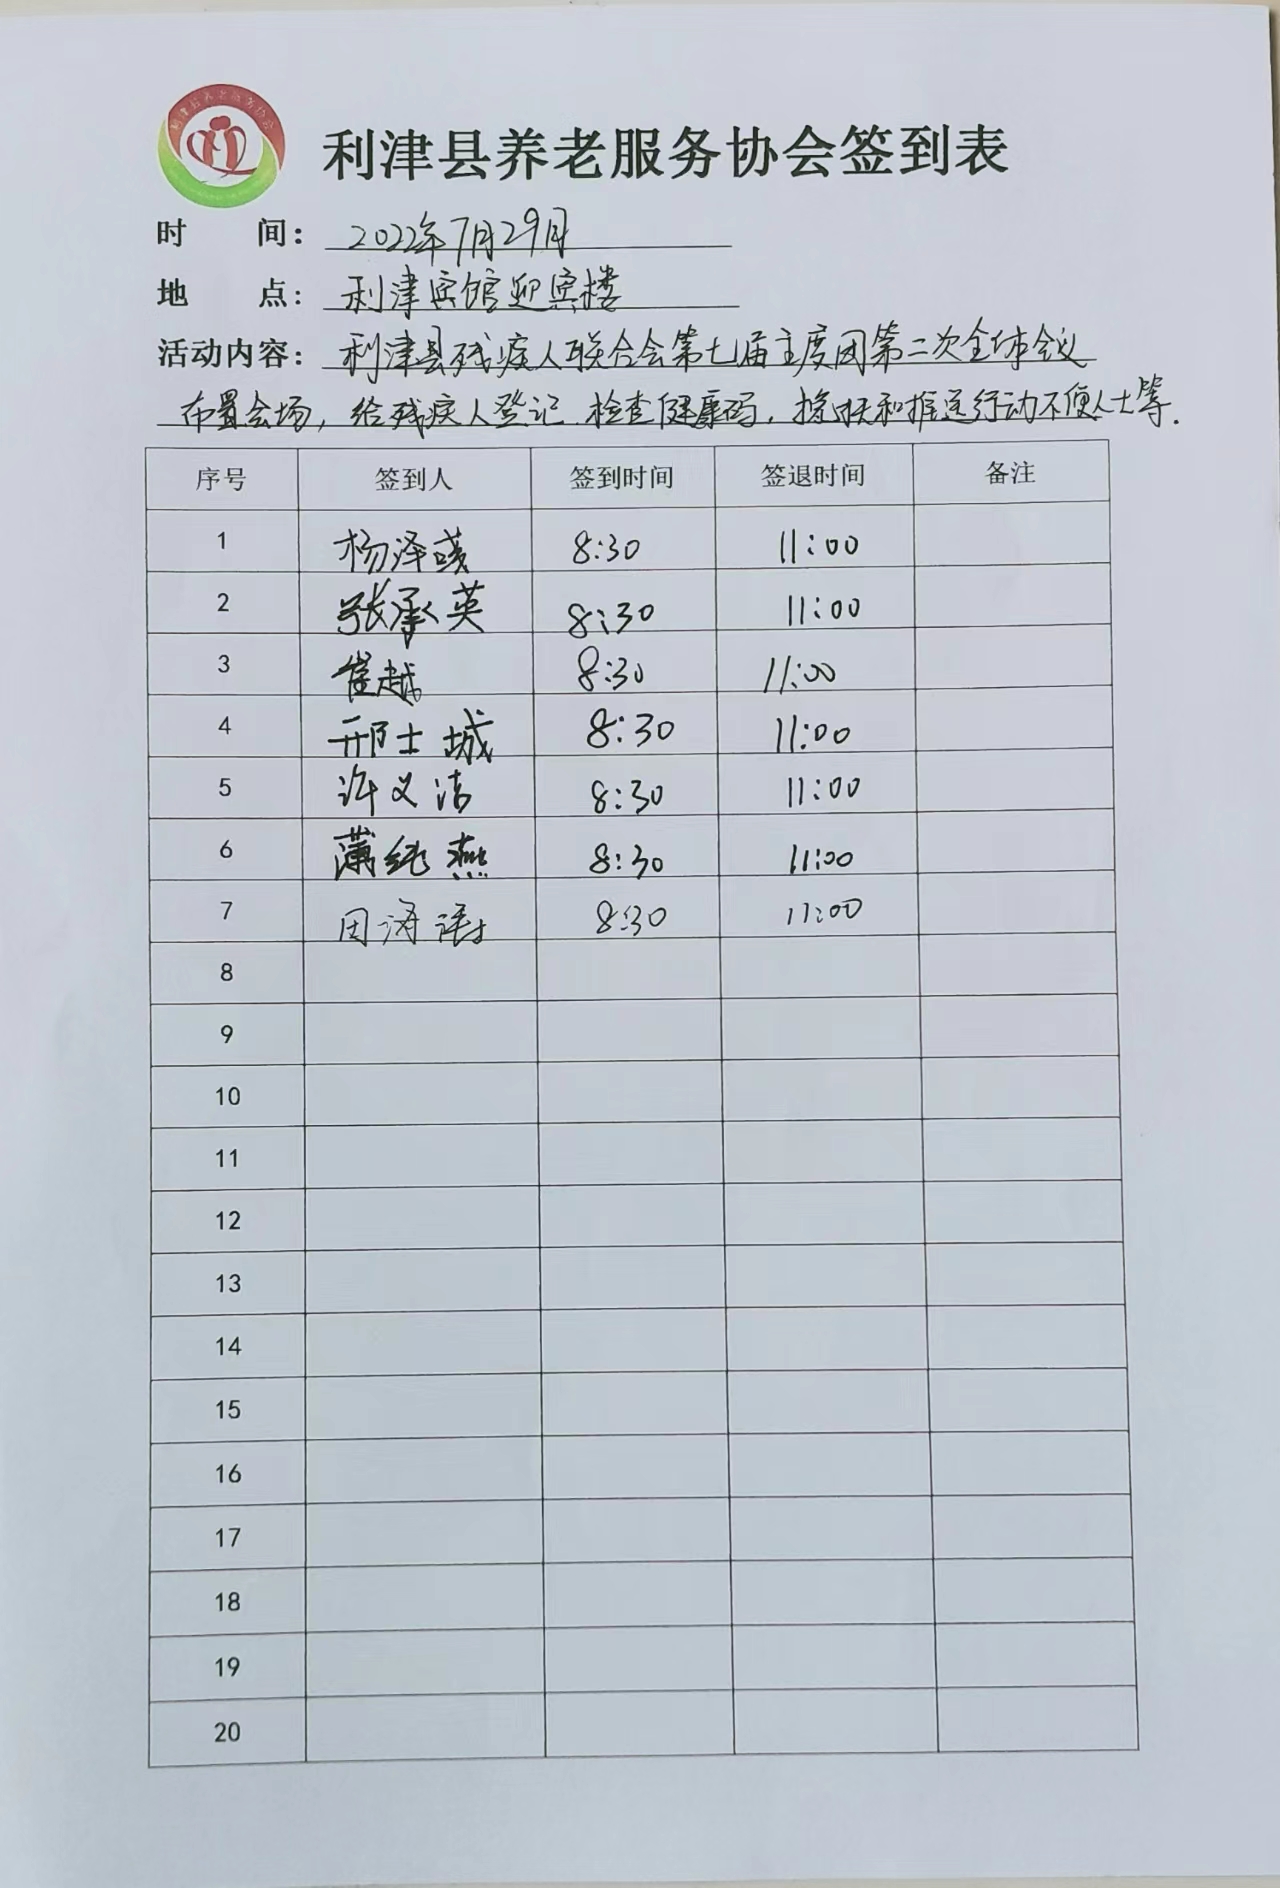 利津县养老服务协会
利津县养老服务协会签到表
时 间： 2022年7月29月
地 点： 利津宾馆迎宾楼
活动内容： 利津县残疾人联合会第七届主度团第二次全体会议
布置会场，给残疾人登记.检查健康码，搀扶和推送行动不便人士等.
序号 签到人 签到时间 签退时间 备注
1 杨泽彧 8:30 11:00
2 张承英 8:30 11:00
3 崔越 8:30 11:00
4 邢士城 8:30 11:00
5 许义洁 8:30 11:00
6 薄纯燕 8:30 11:00
7 8:30 11:00
8
9
10
11
12
13
14
15
16
17
18
19
20